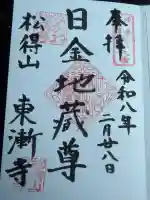 奉拝
令和八年
二月廿八日
日金地蔵尊
松得山
東漸寺